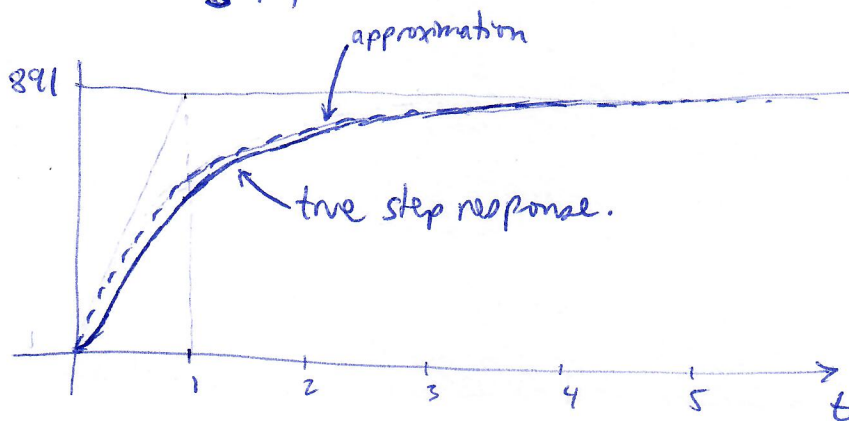 approximation
891
true step response.
1 2 3 4 5
t